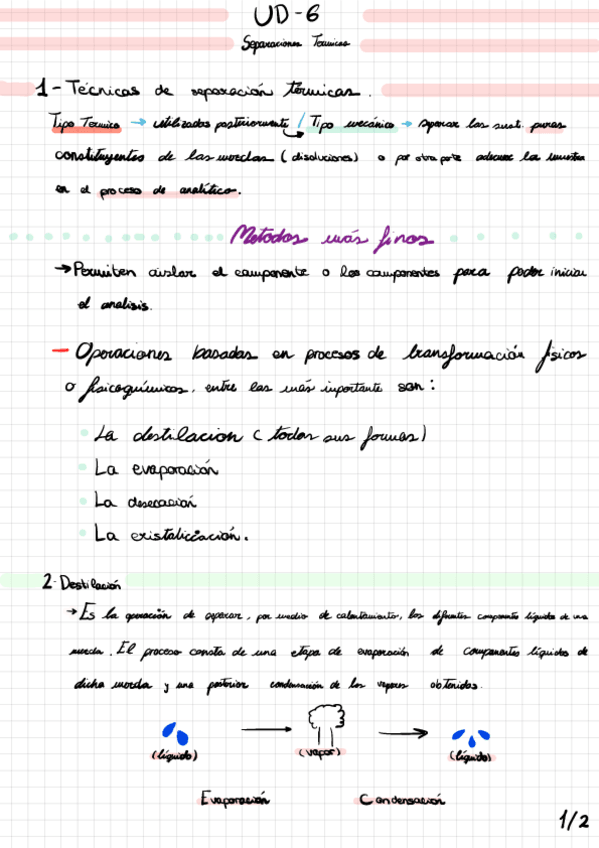 UD-6
Separaciones Termicas
1- Técnicas de separación térmicas.
Tipo Termico → utilizadas posteriormente / Tipo mecánico → separar las sust. puras
constituyentes de las mezclas (disoluciones) o por otra parte adecuar la muestra
en el proceso de analítico.
Metodos más finos
→ Permiten aislar el componente o los componentes para poder iniciar
el analisis.
- Operaciones basadas en procesos de transformación físicos
o fisicoquímicos, entre las más importante son:
• La destilacion (todas sus formas)
• La evaporación
• La desecación
• La cristalización.
2- Destilación
→ Es la operación de separar, por medio de calentamiento, los diferentes componentes líquidos de una
mezcla. El proceso consta de una etapa de evaporación de componentes líquidos de
dicha mezcla y una posterior condensación de los vapores obtenidos.
(líquido) (vapor) (líquido)
Evaporación Condensación
1/2